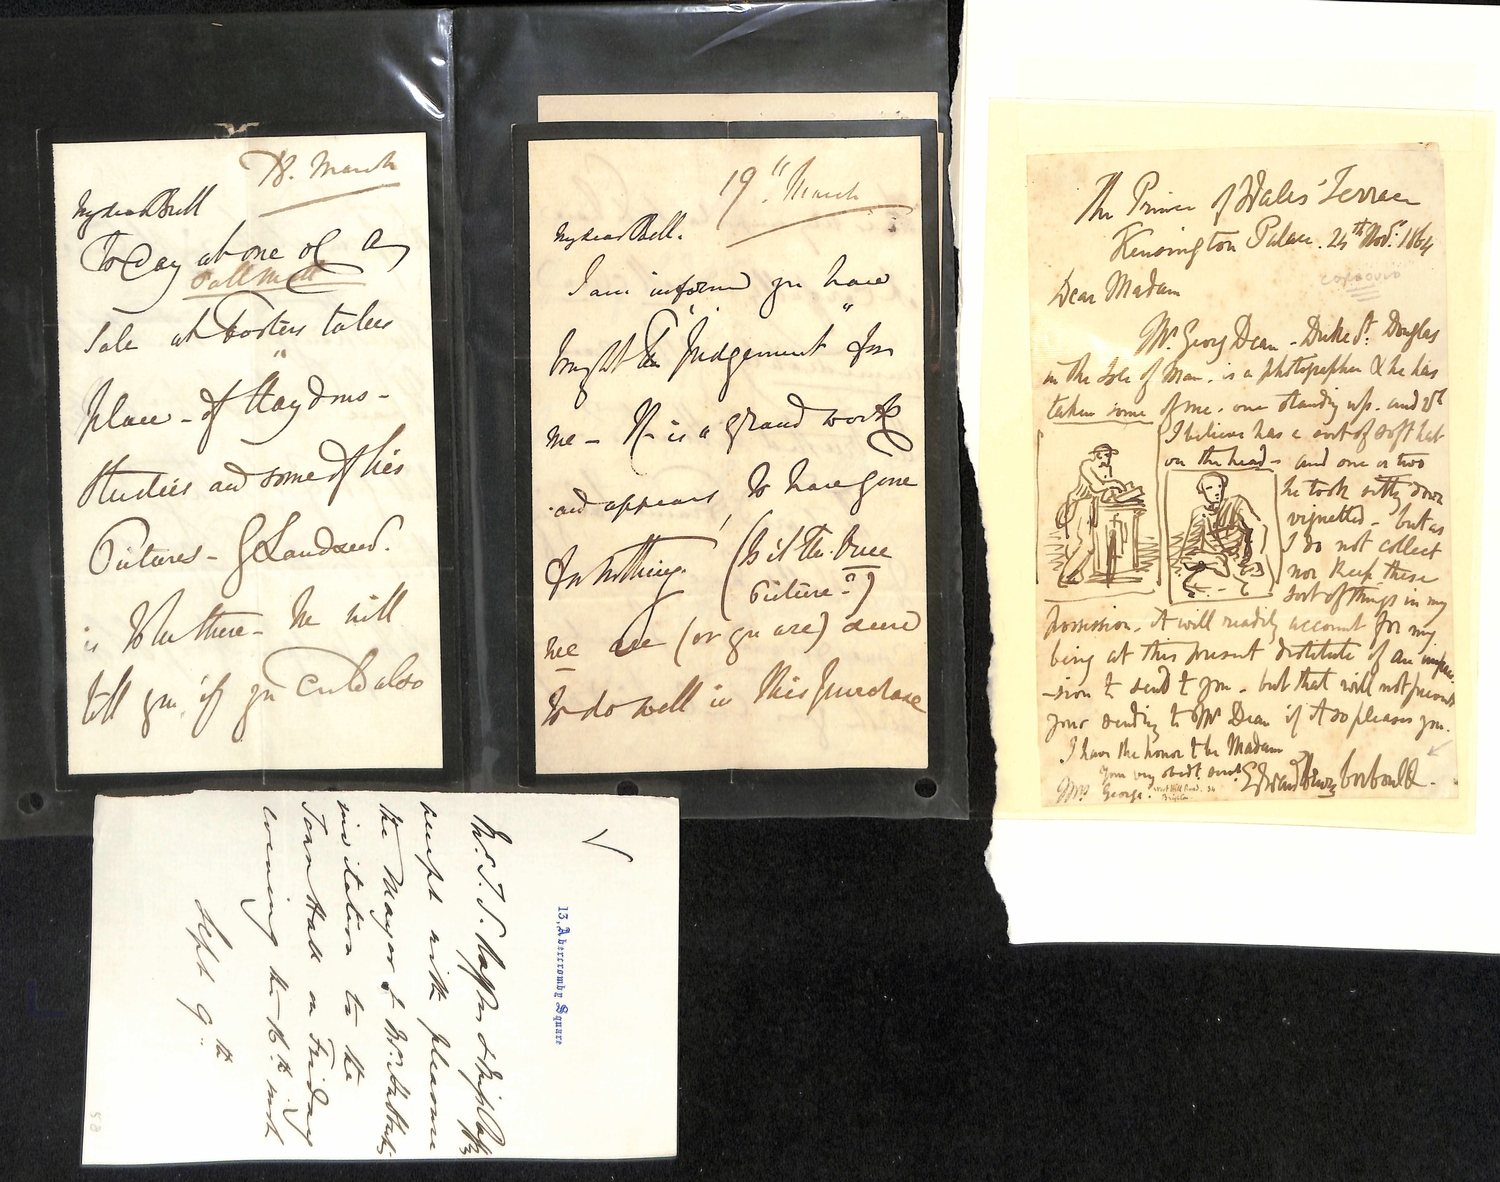 18. March
My dear Bell
To Day at one of a
Pall Mall
Sale at Fosters takes
place - of Haydons -
Studies and some of his
Pictures - G Landseer.
is to be there - he will
tell you if you could also
19" March
My dear Bell.
I am informed you have
bought the "Judgement" for
me - It is a grand work
and appears to have gone
for nothing. (Is it the true
Picture?)
we are (or you are) seem
to do well in this purchase
The Prince of Wales' Terrace
Kensington Palace. 24th Nov. 1864
Dear Madam
Mr. Georg Dean - Duke St. Douglas
in the Isle of Man. is a photographer & he has
taken some of me. one standing up. and
I believe has a sort of soft hat
on the head - and one or two
he took sitting down
vignetted - but as
I do not collect
nor keep these
sort of things in my
possession. it will readily account for my
being at this present destitute of an impres
-sion to send to you - but that will not prevent
your sending to Mr Dean if it so pleases you.
I have the honor to be Madam
Your very obedt servt Edward Henry Corbould -
Mrs George.
13, Abercromby Square
Mr. T. S. Raffles & Miss Raffles
accept with pleasure
the Mayor & Mrs
invitation to the
Town Hall on Friday
evening the 16th inst
Sept 9th
58